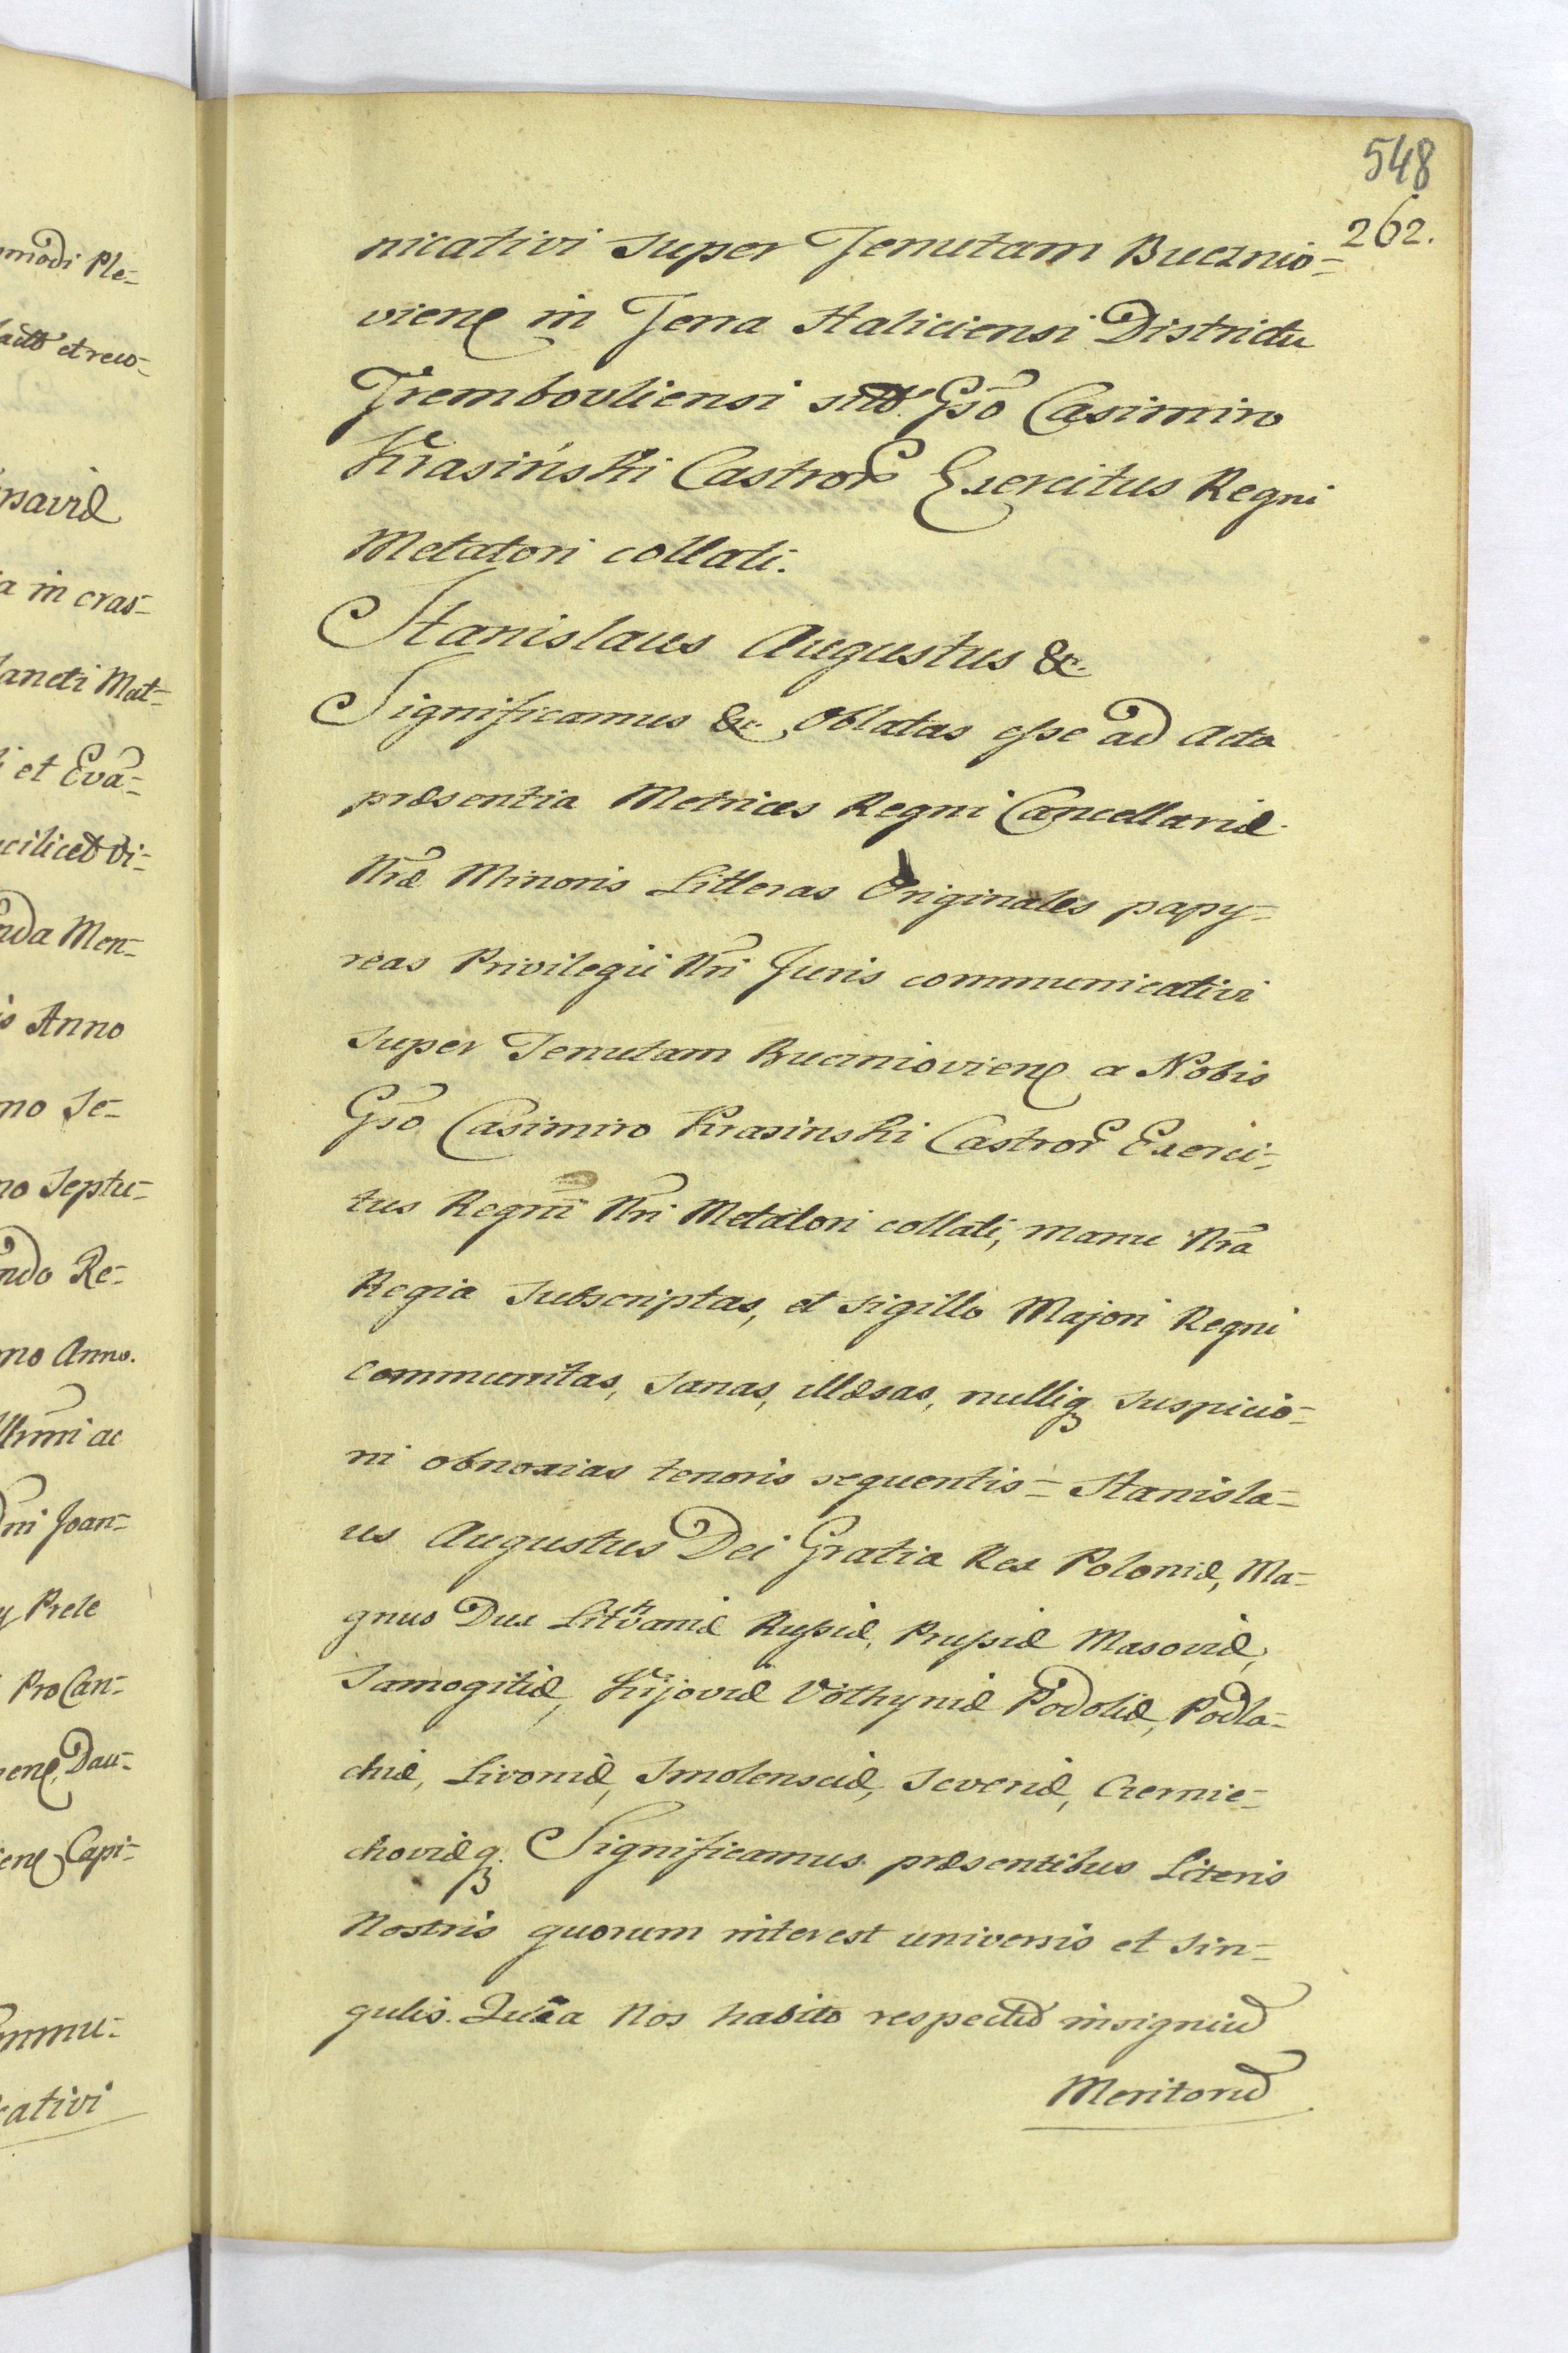 548
262.
nicativi super Tenutam Bucznio-
viene in Terra Haliciensi Districtu
Trembovliensi Gso Casimiro
Krasiński Castror Exercitus Regni
Metatori collati.
Stanislaus Augustus &c.
Significamus &c. Oblatas esse ad Acta
præsentia Metrices Regni Cancellariæ
Nræ Minoris Litteras Originales papy-
reas Privilegii Nri Juris communicativi
super Tenutam Buczniovien a Nobis
Gso Casimiro Krasinski Castror Exerci-
tus Regni Nri Metatori collati, manu Nra
Regia subscriptas, et sigillo Majori Regni
communitas, sanas, illæsas, nulliq suspicio-
ni obnoxias tenoris sequentis = Stanisla-
us Augustus Dei Gratia Rex Poloniæ, Ma-
gnus Dux Lithvaniæ Russiæ, Prussiæ Masoviæ,
Samogitiæ, Kijoviæ Volhyniæ Podoliæ, Podla-
chiæ, Livoniæ, Smolensciæ, Severiæ, Czernie-
choviæq. Significamus præsentibus Literis
Nostris quorum interest universis et sin-
gulis. Quia Nos habito respectu insigniu
Meritoru
modi Ple-
et reco-
a in cras-
Sancti Mat-
i et Eva-
scilicet Vi-
nda Men-
is Anno
mo Se-
no Septu-
ndo Re-
mo Anno.
Illrmi ac
Dni Joan-
y Prele
ProCan-
Dau-
Capi-
ommu-
cativi